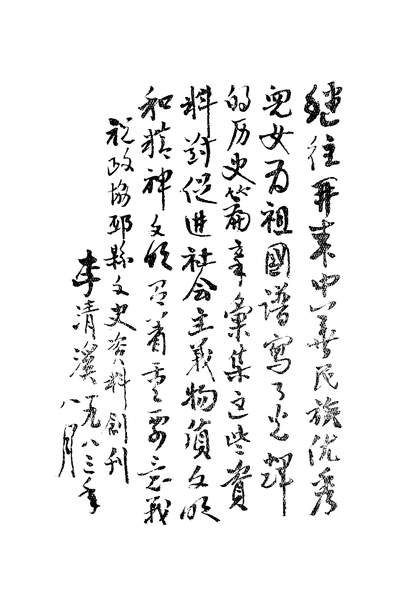 继往开来中华民族优秀
儿女为祖國谱寫了光輝
的历史篇章彙集这些资
料對促进社会主義物质文明
和精神文明有着重要意義
祝政協邳縣文史资料創刊
李清溪一九八三年
八月